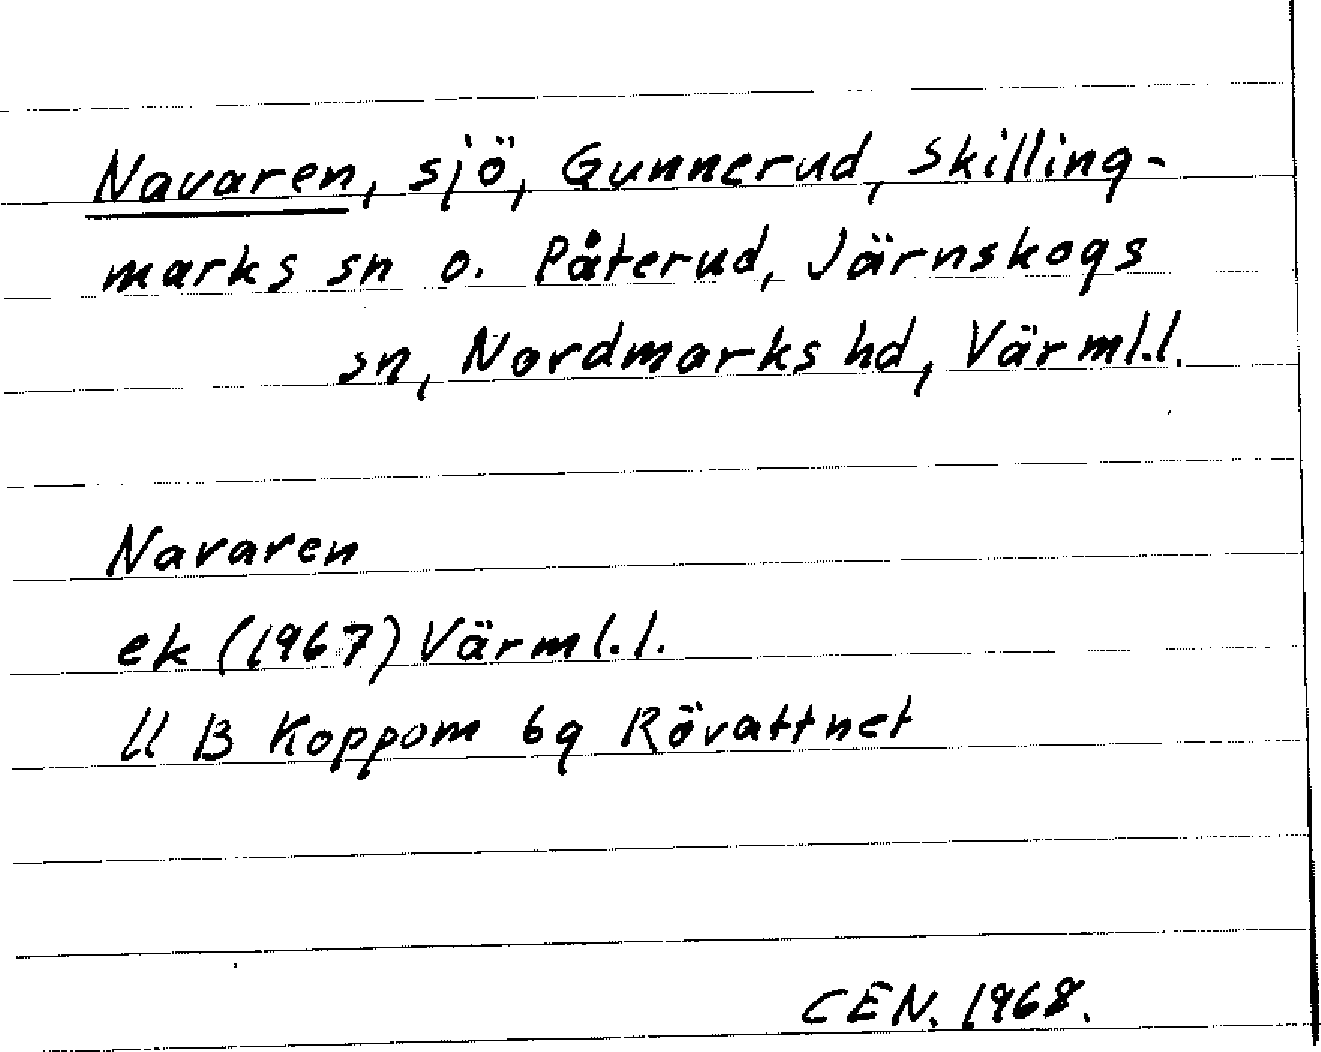 Navaren, sjö, Gunnerud, Skilling-
marks sn o. Påterud, Järnskogs
sn, Nordmarks hd, Värml.l.
Navaren
ek (1967) Värml.l.
11 B Koppom 6g Rövattnet
CEN. 1968.